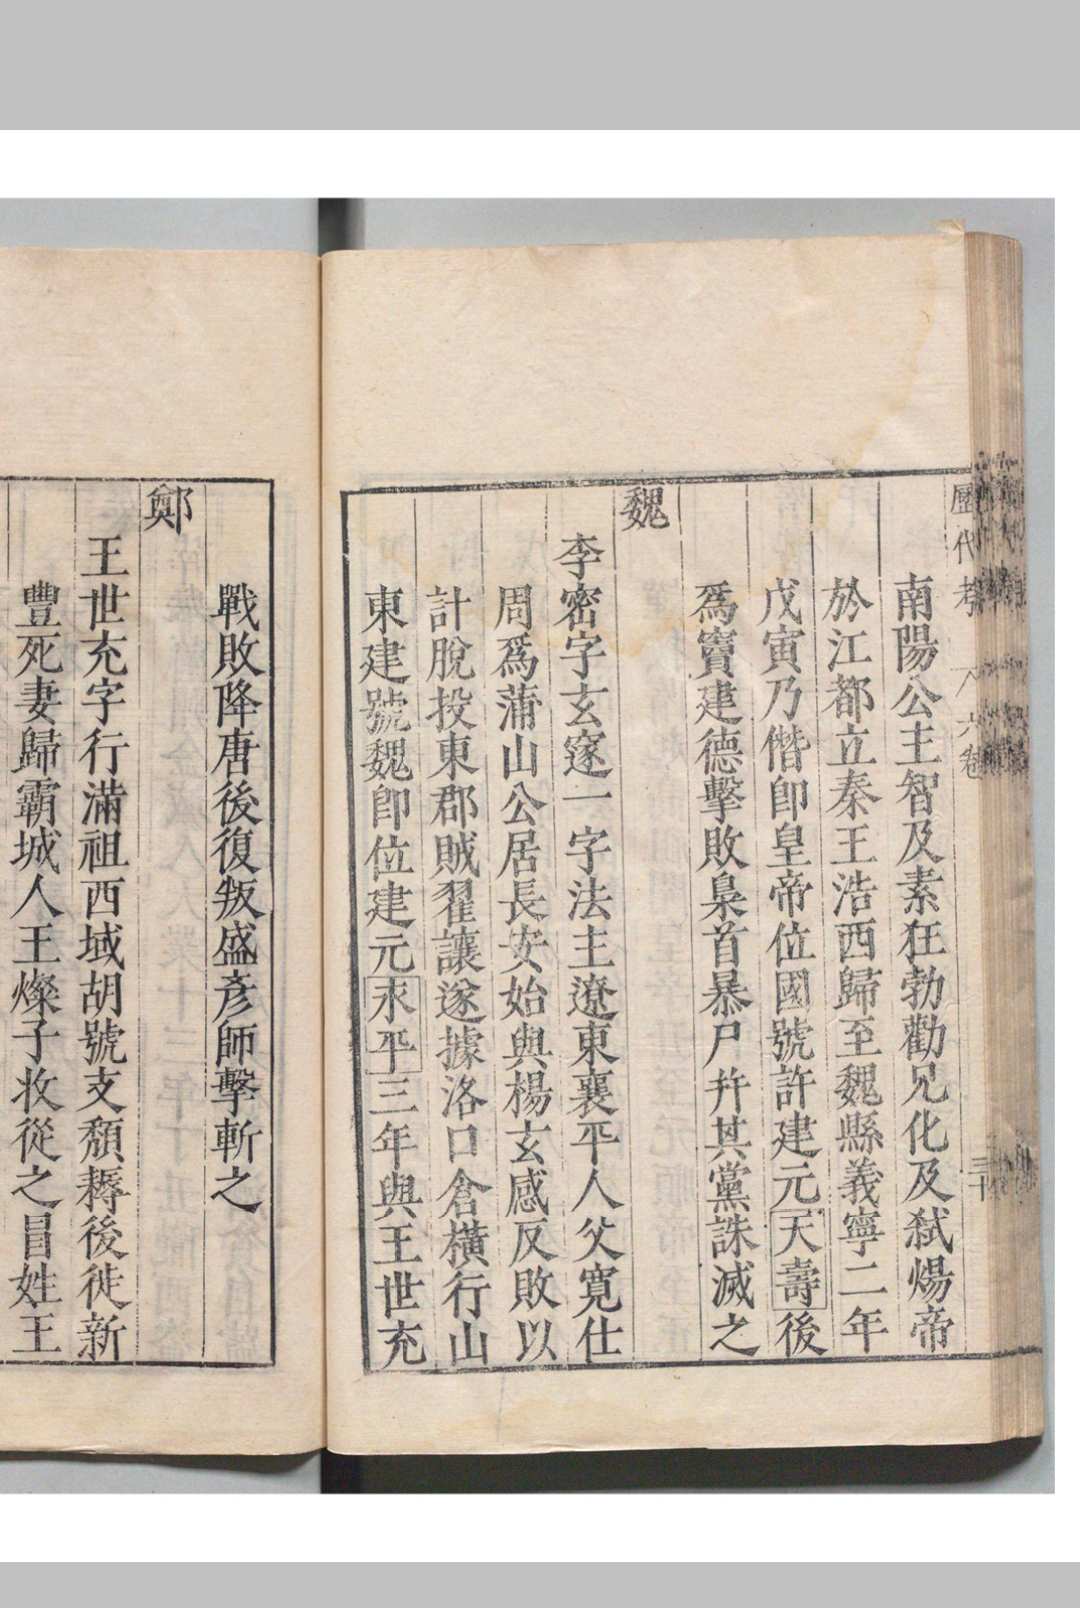 歷代考 八六卷 三十
南陽公主智及素狂勃勸兄化及弑煬帝
於江都立秦王浩西歸至魏縣義寧二年
戊寅乃僭卽皇帝位國號許建元天壽後
爲竇建德擊敗梟首暴尸幷其黨誅滅之
魏
李密字玄邃一字法主遼東襄平人父寬仕
周爲蒲山公居長安始與楊玄感反敗以
計脫投東郡賊翟讓遂據洛口倉橫行山
東建號魏卽位建元永平三年與王世充
戰敗降唐後復叛盛彥師擊斬之
鄭
王世充字行滿祖西域胡號支頹耨後徙新
豐死妻歸霸城人王燦子收從之冒姓王